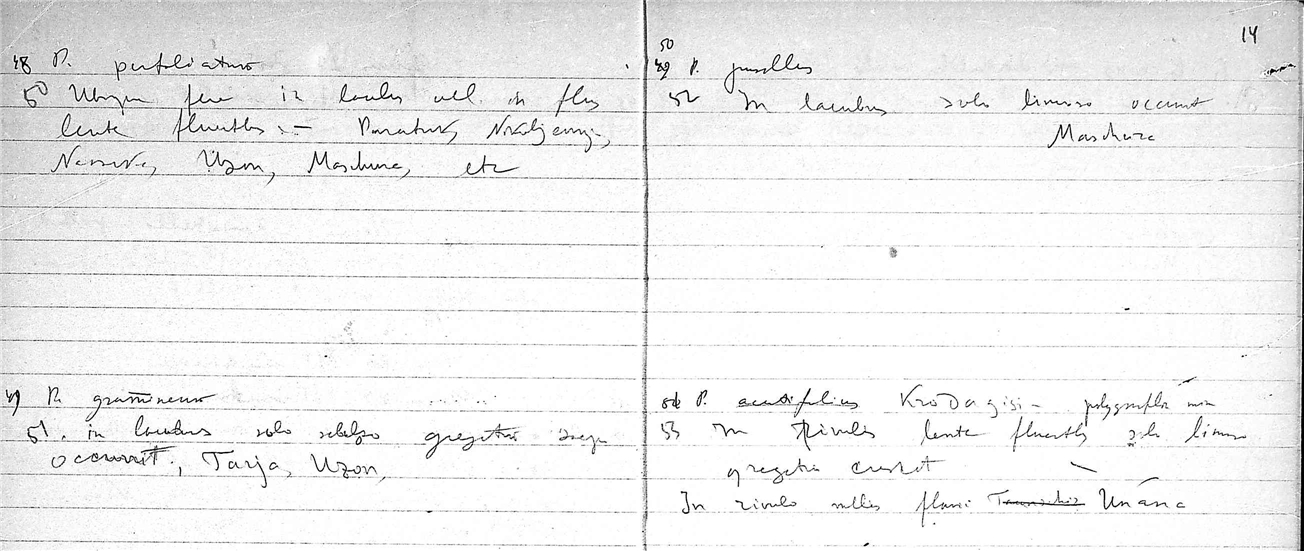 48 P. perfoliatus
50 Ubique fere in lacubus vel. in flus
lente fluentbs. — Paratunka,
Uzon, Maschura, etc
49 P. gramineus
51. in lacubus solo gregatim saepe
occurrit, Tarja, Uzon,
14
50
49 P. pusillus
52 In lacubus solo limoso occurrit
Maschura
P. acutifolius
53 In Rivulis lente fluentbs solo limoso
gregatim crescit
In rivulo vallis fluvii Unana